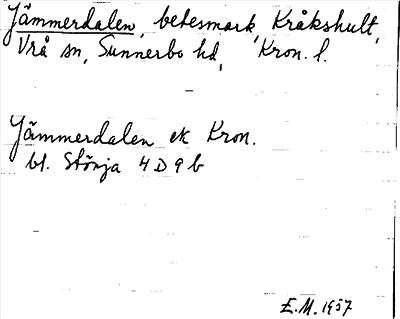 Jämmerdalen, betesmark, Kråkshult,
Vrå sn, Sunnerbo hd, Kron. l.
Jämmerdalen ek Kron.
bl. Störja 4 D 9 b
E.M. 1957